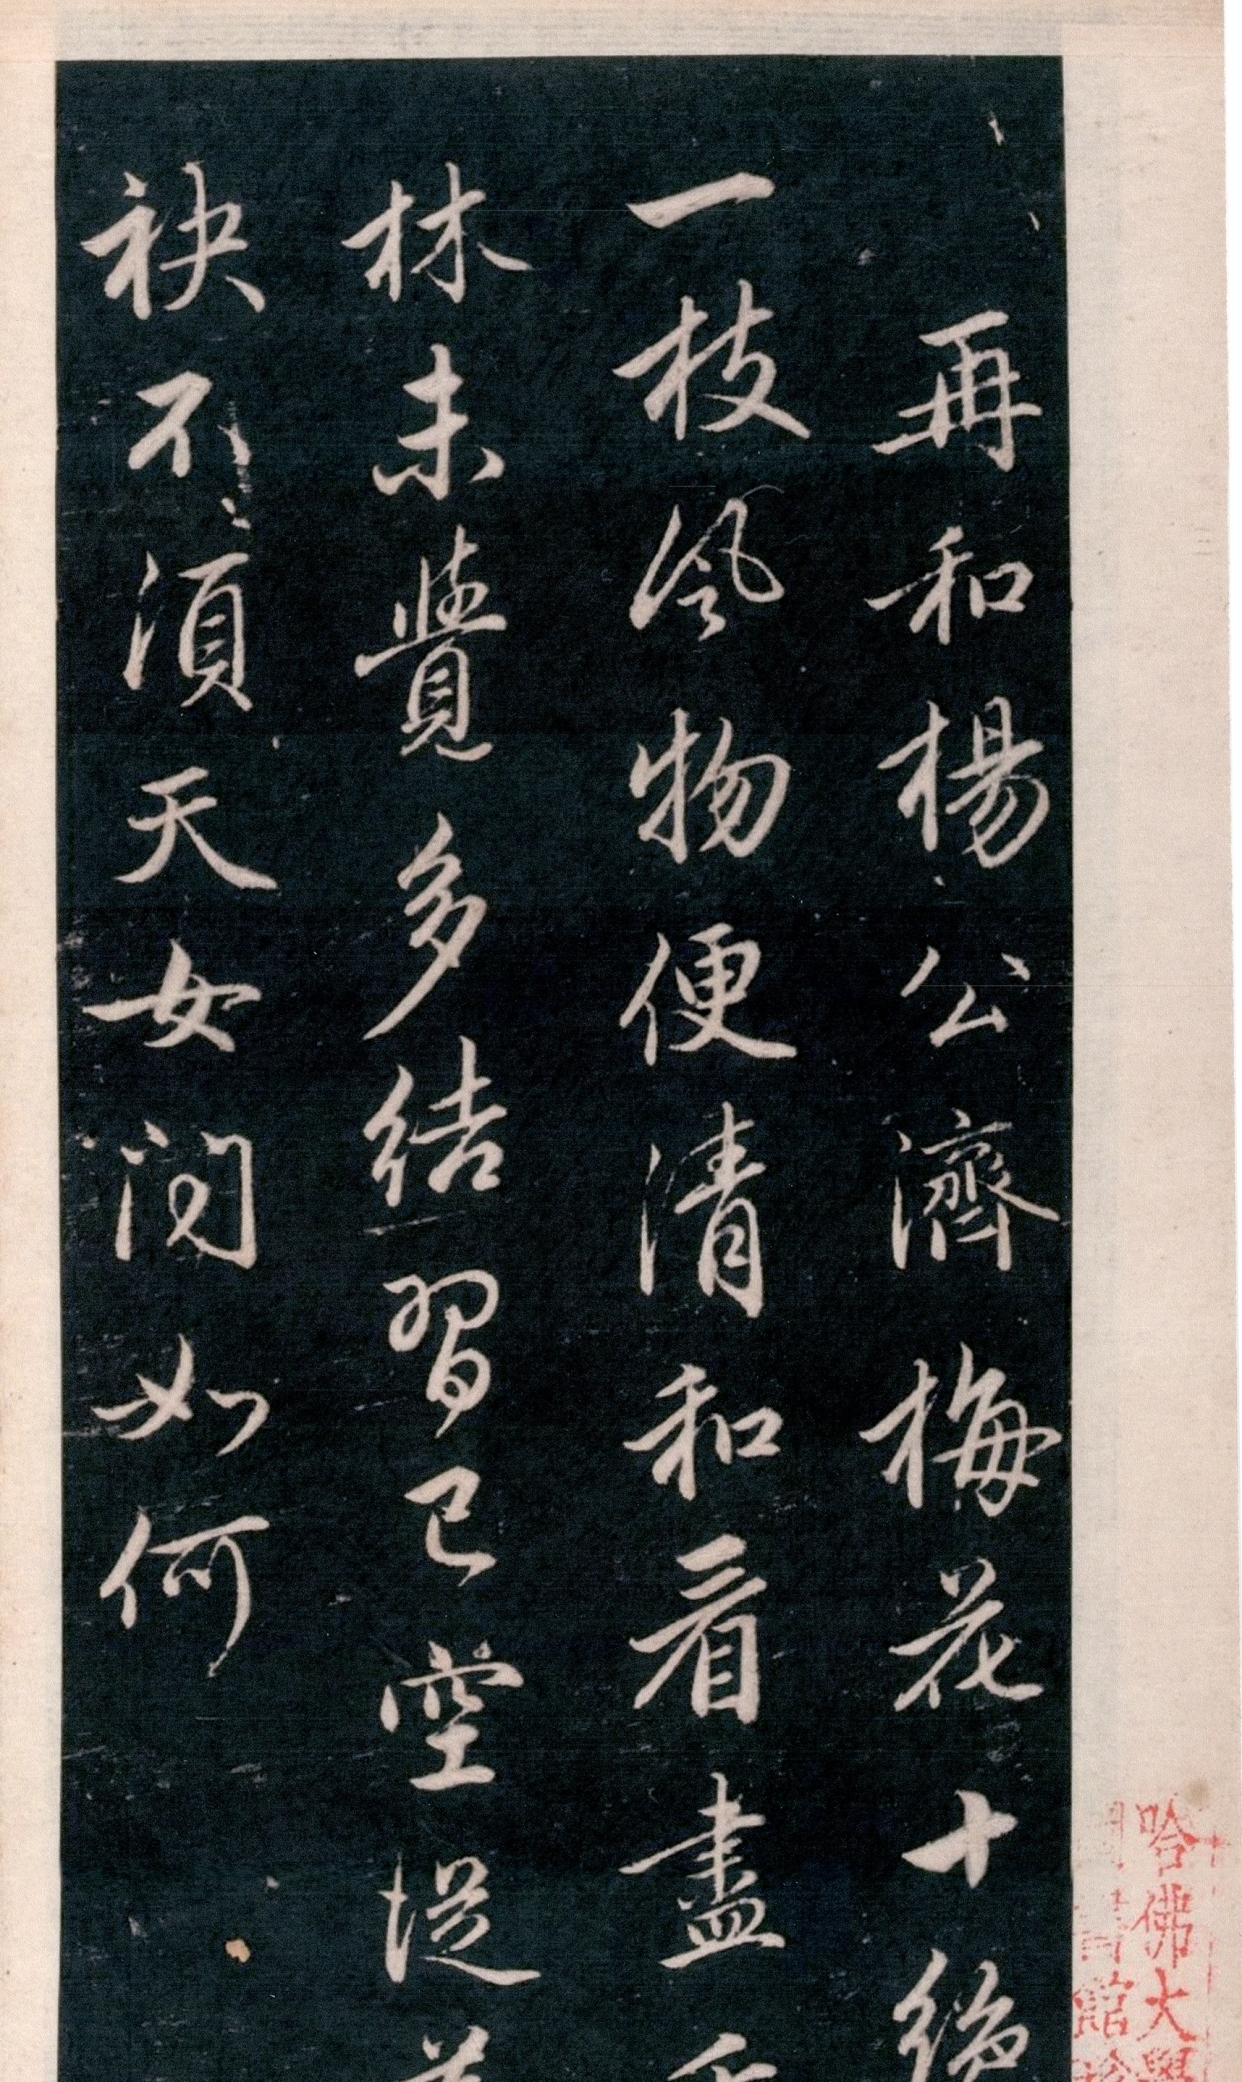 哈佛大學
書館
再和楊公濟梅花十絶
一枝風物便清和看盡
林未覺多結習已空從
袂不須天女問如何